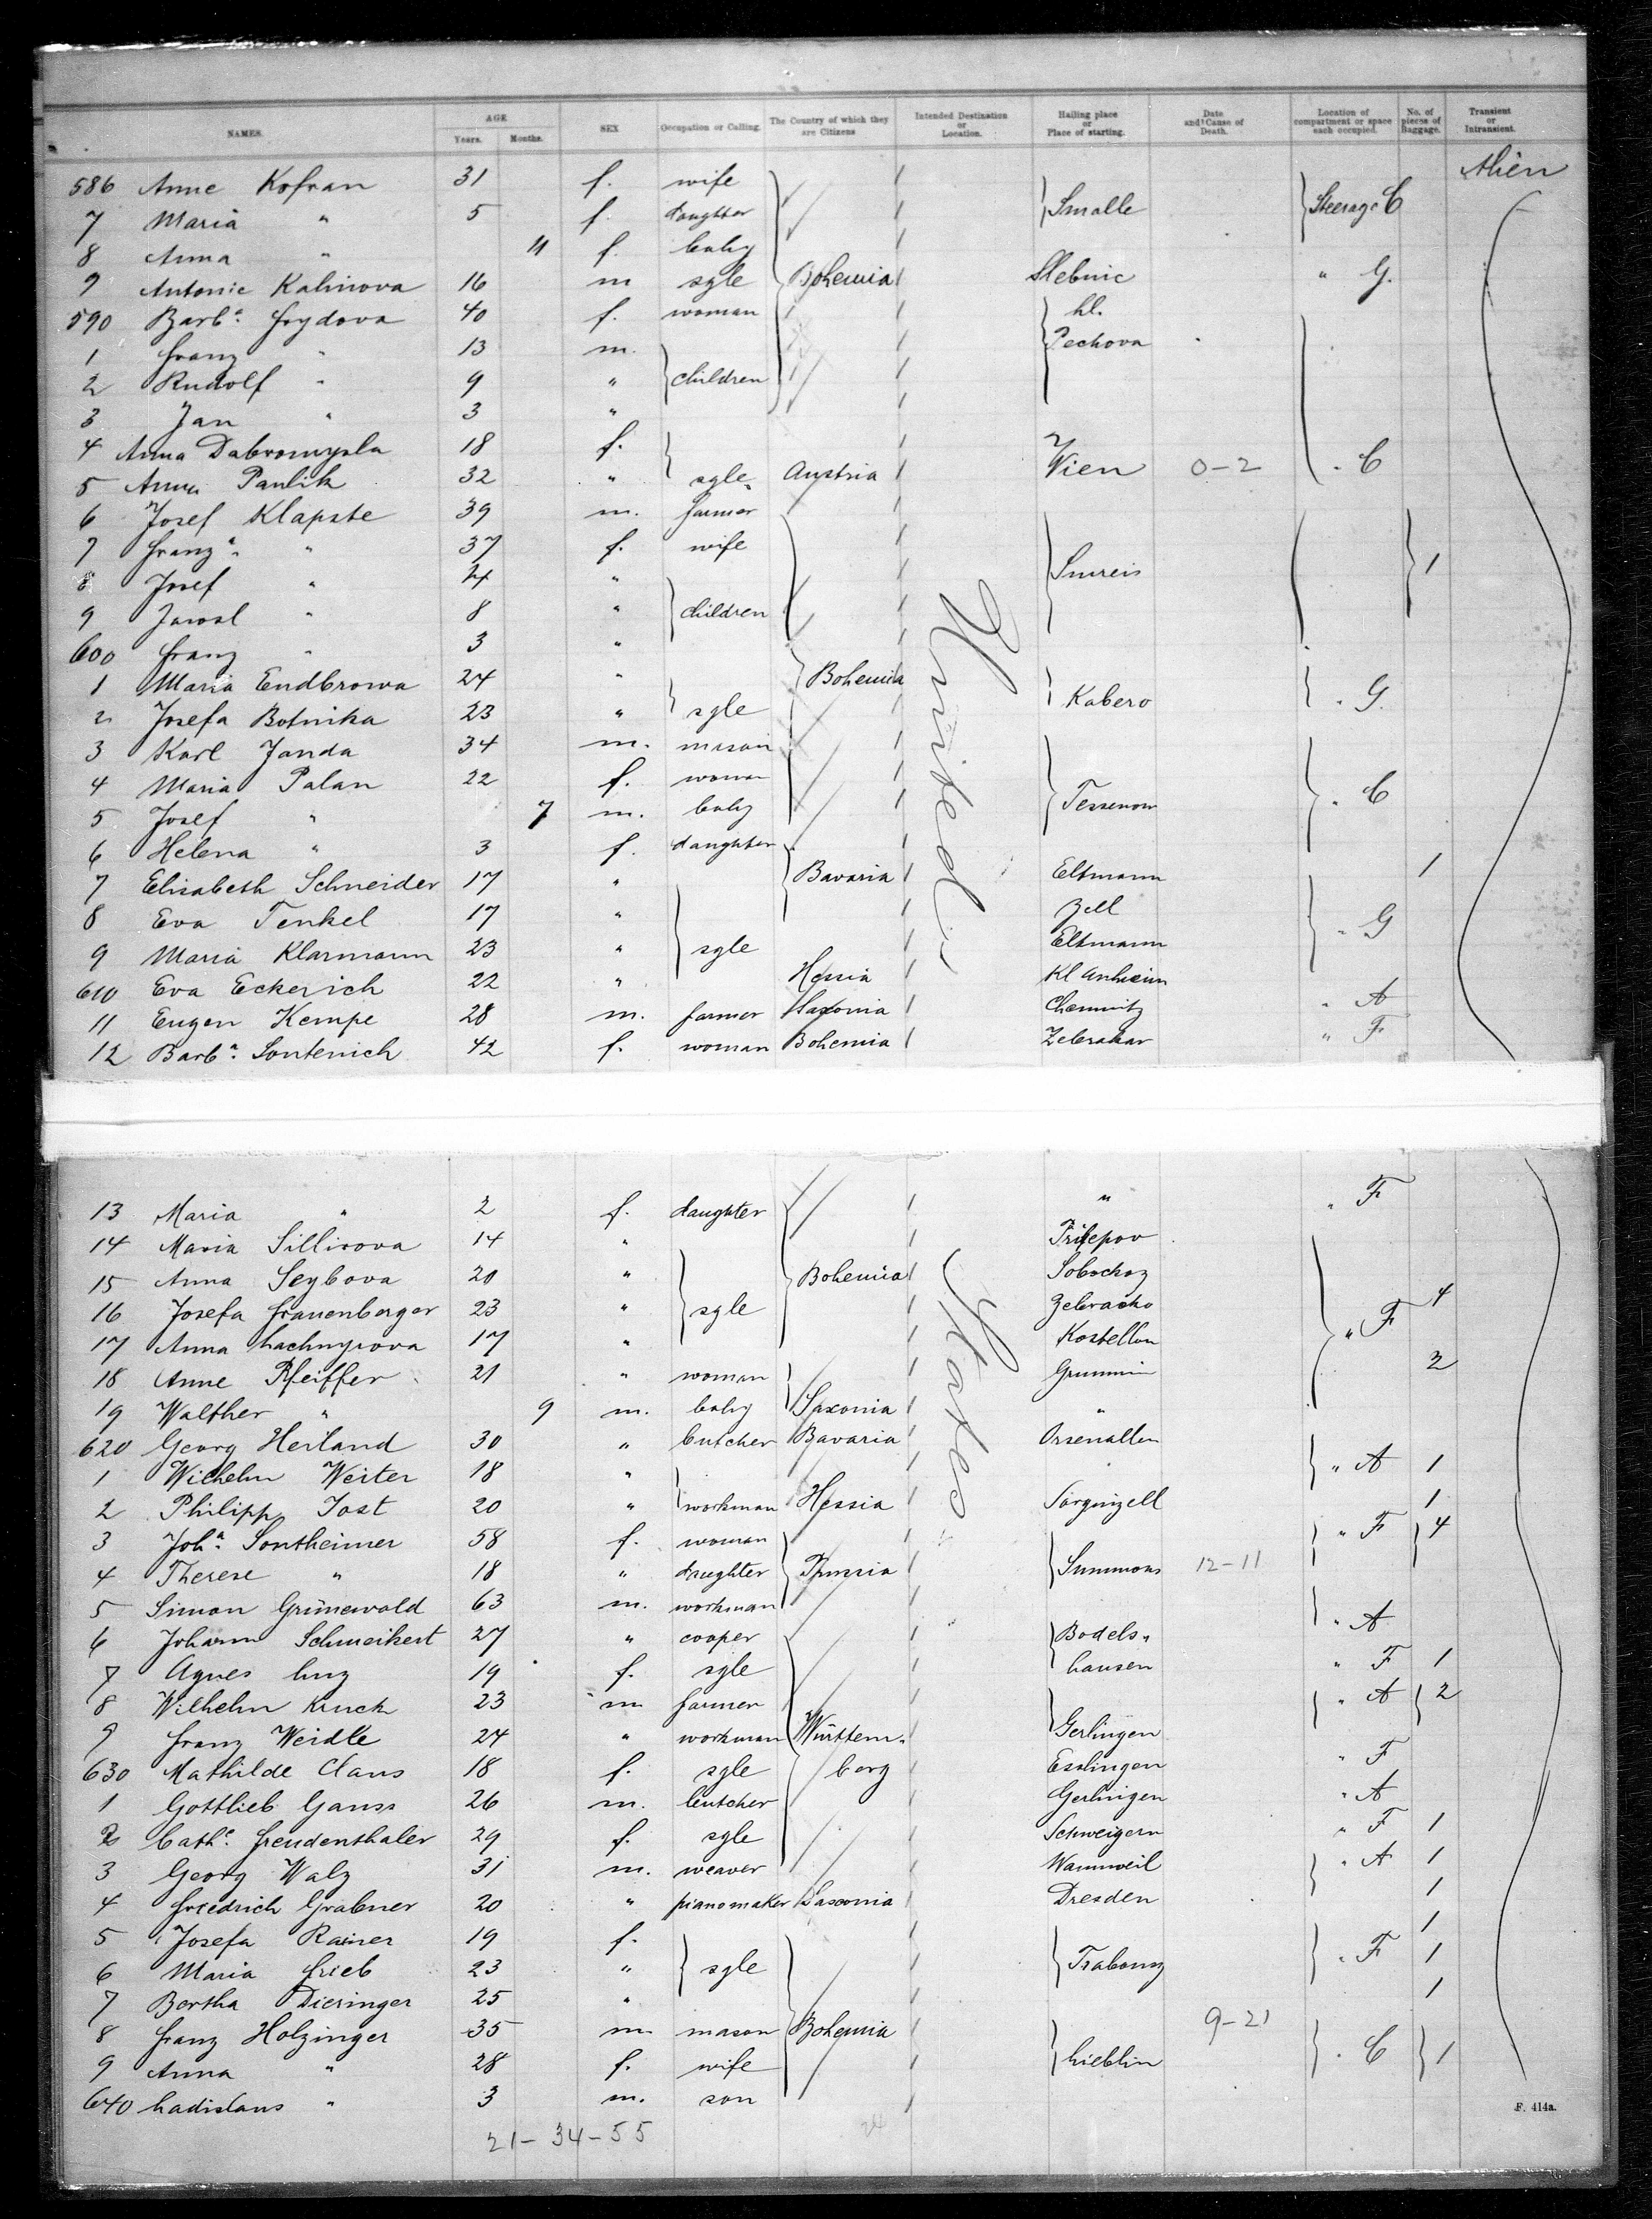 NAMES. AGE Years. Months. SEX Occupation or Calling. The Country of which they are Citizens Intended Destination or Location. Hailing place or Place of starting. Date and Cause of Death. Location of compartment or space each occupied. No. of pieces of Baggage. Transient or Intransient.
586 Anne Kofran 31 f. wife Alien
7 Maria " 5 f. daughter Smolle Steerage C
8 Anna " 11 f. baby
9 Antonie Kalinova 16 m sgle Bohemia Slebnic " G.
590 Barbª. Frydova 40 f. woman hl.
1 Franz " 13 m. Pechova
2 Rudolf " 9 " children
3 Jan " 3 "
4 Anna Dabromysla 18 f. Wien 0-2 " C
5 Anna Paulik 32 " sgle. Austria
6 Josef Klapste 39 m. farmer
7 Franzª. " 37 f. wife 1
8 Josef " "
9 Jarosl " 8 " children
600 Franz " 3 "
1 Maria Endbrowa 24 " Bohemia
2 Josefa Botnika 23 " sgle Kabero " G.
3 Karl Janda 34 m. mason
4 Maria Palan 22 f. woman " C
5 Josef " 7 m. baby Tessenow
6 Helena " 3 f. daughter
7 Elisabeth Schneider 17 " Bavaria Eltmann 1
8 Eva Tenkel 17 " Zell " G
9 Maria Klarmann 23 " sgle Eltmann
610 Eva Eckerich 22 " Hessia Kl Anheim
11 Eugen Kempe 28 m. farmer Saxonia Chemnitz " A
12 Barbª. Sontenich 42 f. woman Bohemia Zebrakar " F
United
13 Maria " 2 f. daughter " " F
14 Maria Sillirova 14 "
15 Anna Seybova 20 " Bohemia Sobochoz
16 Josefa Frauenberger 23 " sgle Zebracko 4
17 Anna Lachnyrova 17 " Kostellon " F
18 Anne Pfeiffer 21 " woman 2
19 Walther " 9 m. baby Saxonia "
620 Georg Heiland 30 " butcher Bavaria
1 Wilhelm Weiter 18 " " A 1
2 Philipp Jost 20 " workman Hessia Sarginzell 1
3 Johª. Sontheimer 58 f. woman " F 4
4 Therese " 18 " daughter Prussia Summons 12-11
5 Simon Grünewald 63 m. workman " A
6 Johann Schweikert 27 " cooper Bodels-
7 Agnes Luz 19 f. sgle hausen " F 1
8 Wilhelm Kruck 23 m farmer " A 2
9 Franz Weidle 24 " workman Württem- Gerlingen
630 Mathilde Claus 18 f. sgle berg Esslingen " F
1 Gottlieb Gauss 26 m. butcher Gerlingen " A
2 Cathe. Freudenthaler 29 f. sgle Schweigern " F 1
3 Georg Walz 31 m. weaver Wannweil " A 1
4 Friedrich Grabner 20 " pianomaker Saxonia Dresden 1
5 Josefa Rainer 19 f. 1
6 Maria Frieb 23 " sgle " F 1
7 Bertha Dieringer 25 " 1
8 Franz Holzinger 35 m. mason Bohemia 9-21
9 Anna " 28 f. wife Lieblin " C 1
640 Ladislaus " 3 m. son
States
F. 414a.
21-34-55